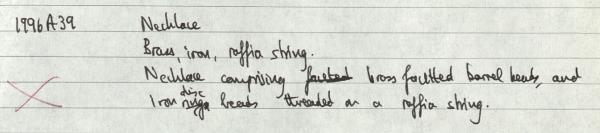 1996A39 Necklace
Brass, iron, raffia string.
Necklace comprising brass facitted barrel beads, and
Iron disc beads threaded on a raffia string.